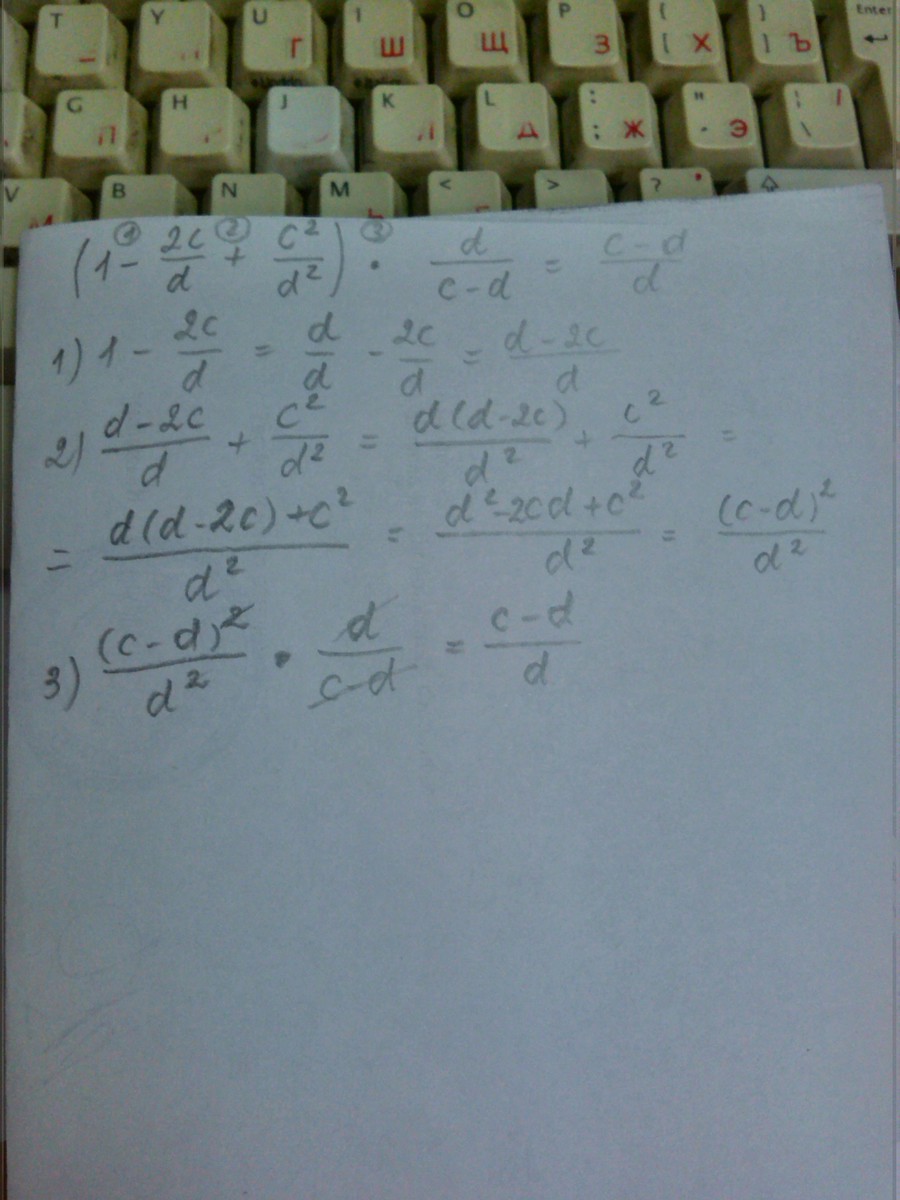 T Y U Г I Ш O Щ P З { [ Х } ] Ъ Enter
G П H J K Л L Д : ; Ж " Э \
V B N M < > ?
(1 - 2c/d + c²/d²) · d/(c-d) = (c-d)/d
① ② ③
1) 1 - 2c/d = d/d - 2c/d = (d-2c)/d
2) (d-2c)/d + c²/d² = d(d-2c)/d² + c²/d² =
= (d(d-2c)+c²)/d² = (d²-2cd+c²)/d² = (c-d)²/d²
3) (c-d)²/d² · d/(c-d) = (c-d)/d